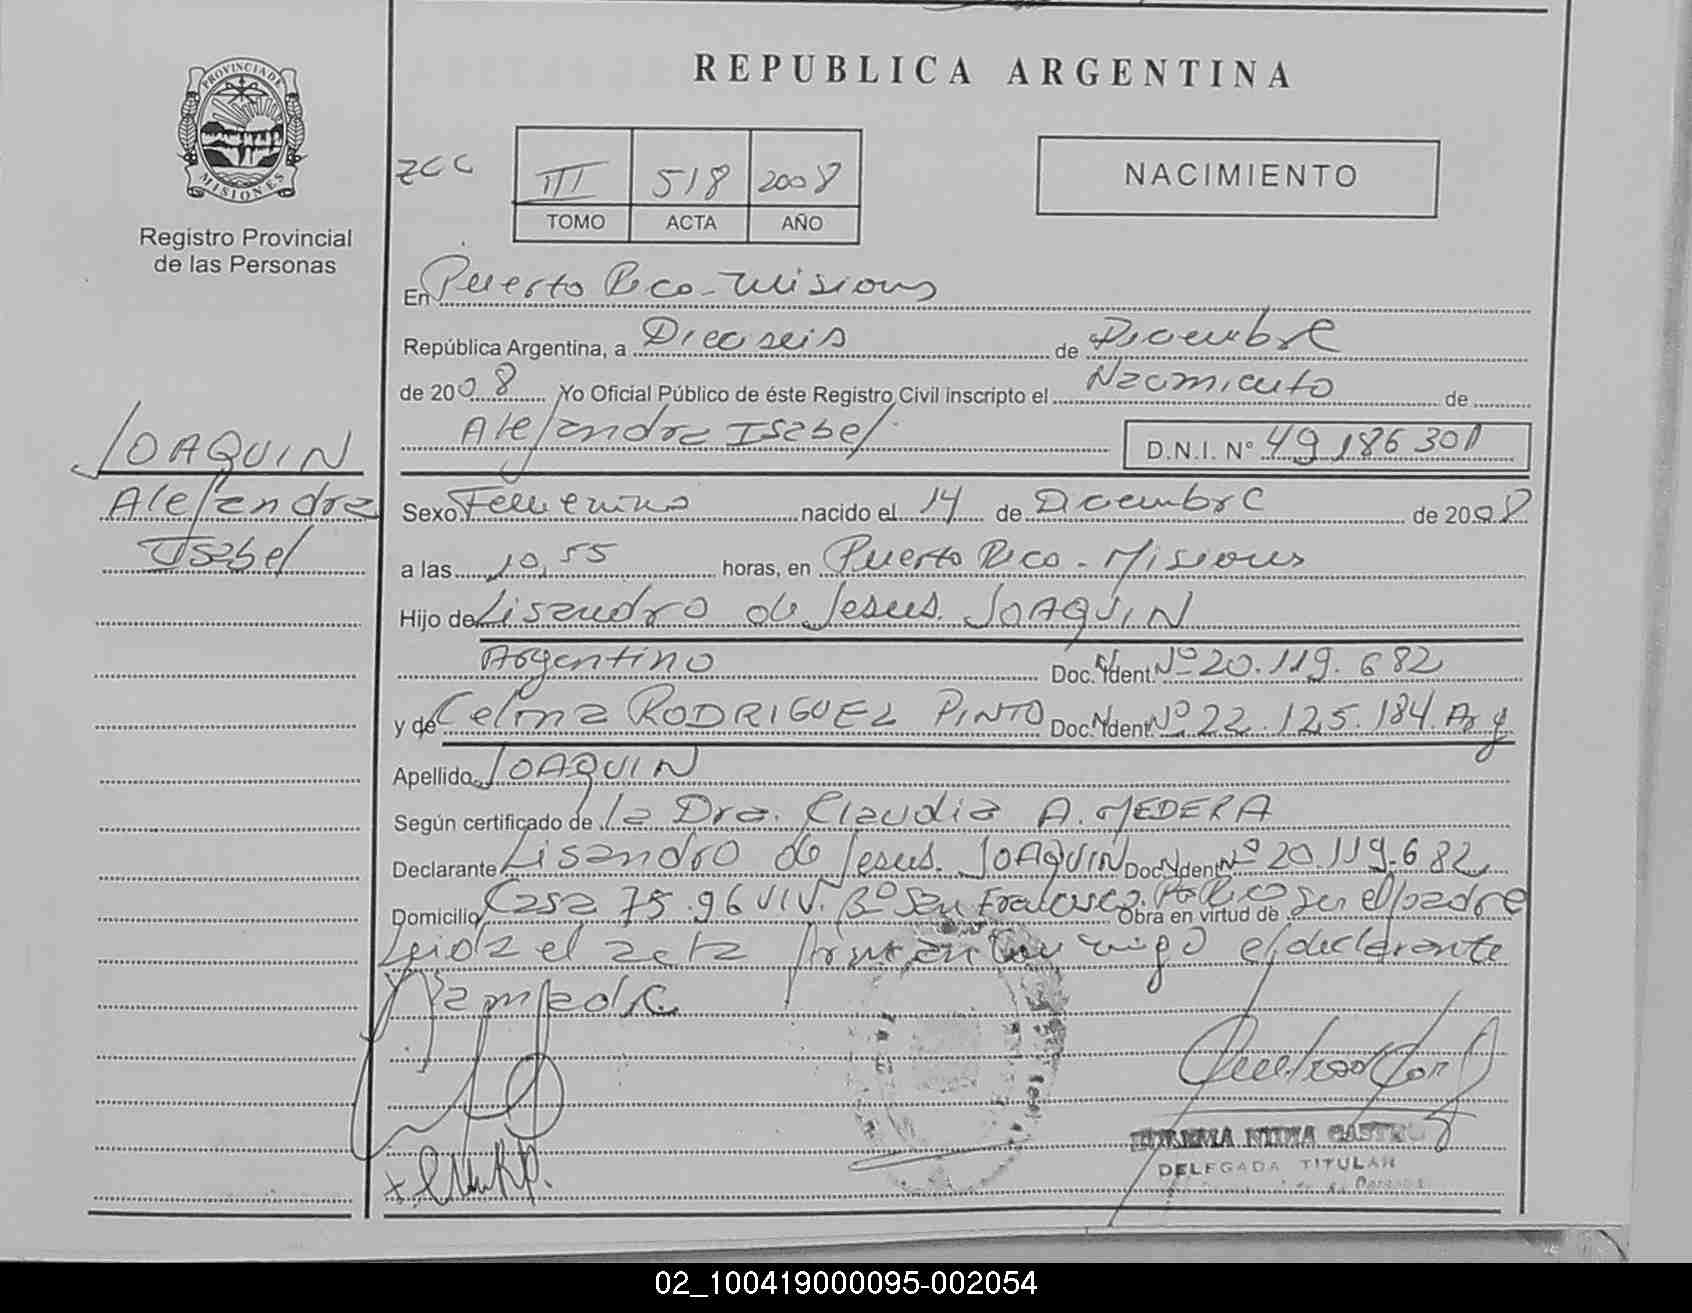 REPUBLICA ARGENTINA
PROVINCIA DE
MISIONES
Registro Provincial
de las Personas
III 518 2008
TOMO ACTA AÑO
NACIMIENTO
En Puerto Rico - Misiones
República Argentina, a Dieciseis de Diciembre
de 2008 Yo Oficial Público de éste Registro Civil inscripto el Nacimiento de
Alejandra Isabel D.N.I. Nº 49 186 301
JOAQUIN
Alejandra
Isabel
Sexo Femenino nacido el 14 de Diciembre de 2008
a las 10,55 horas, en Puerto Rico - Misiones
Hijo de Lisandro de Jesus JOAQUIN
Argentino Doc. Ident. Nº 20.119.682
y de Celma RODRIGUEZ PINTO Doc. Ident. Nº 22.125.184. Arg
Apellido JOAQUIN
Según certificado de la Dra. Claudia A. MEDERA
Declarante Lisandro de Jesus JOAQUIN Doc. Ident. Nº 20.119.682
Domicilio Casa 75. 96 VIV. Bº San Francisco. Pto Rico Obra en virtud de Ser el padre
Leida el acta firman conmigo el declarante
y la madre
DELEGADA TITULAR
02_100419000095-002054